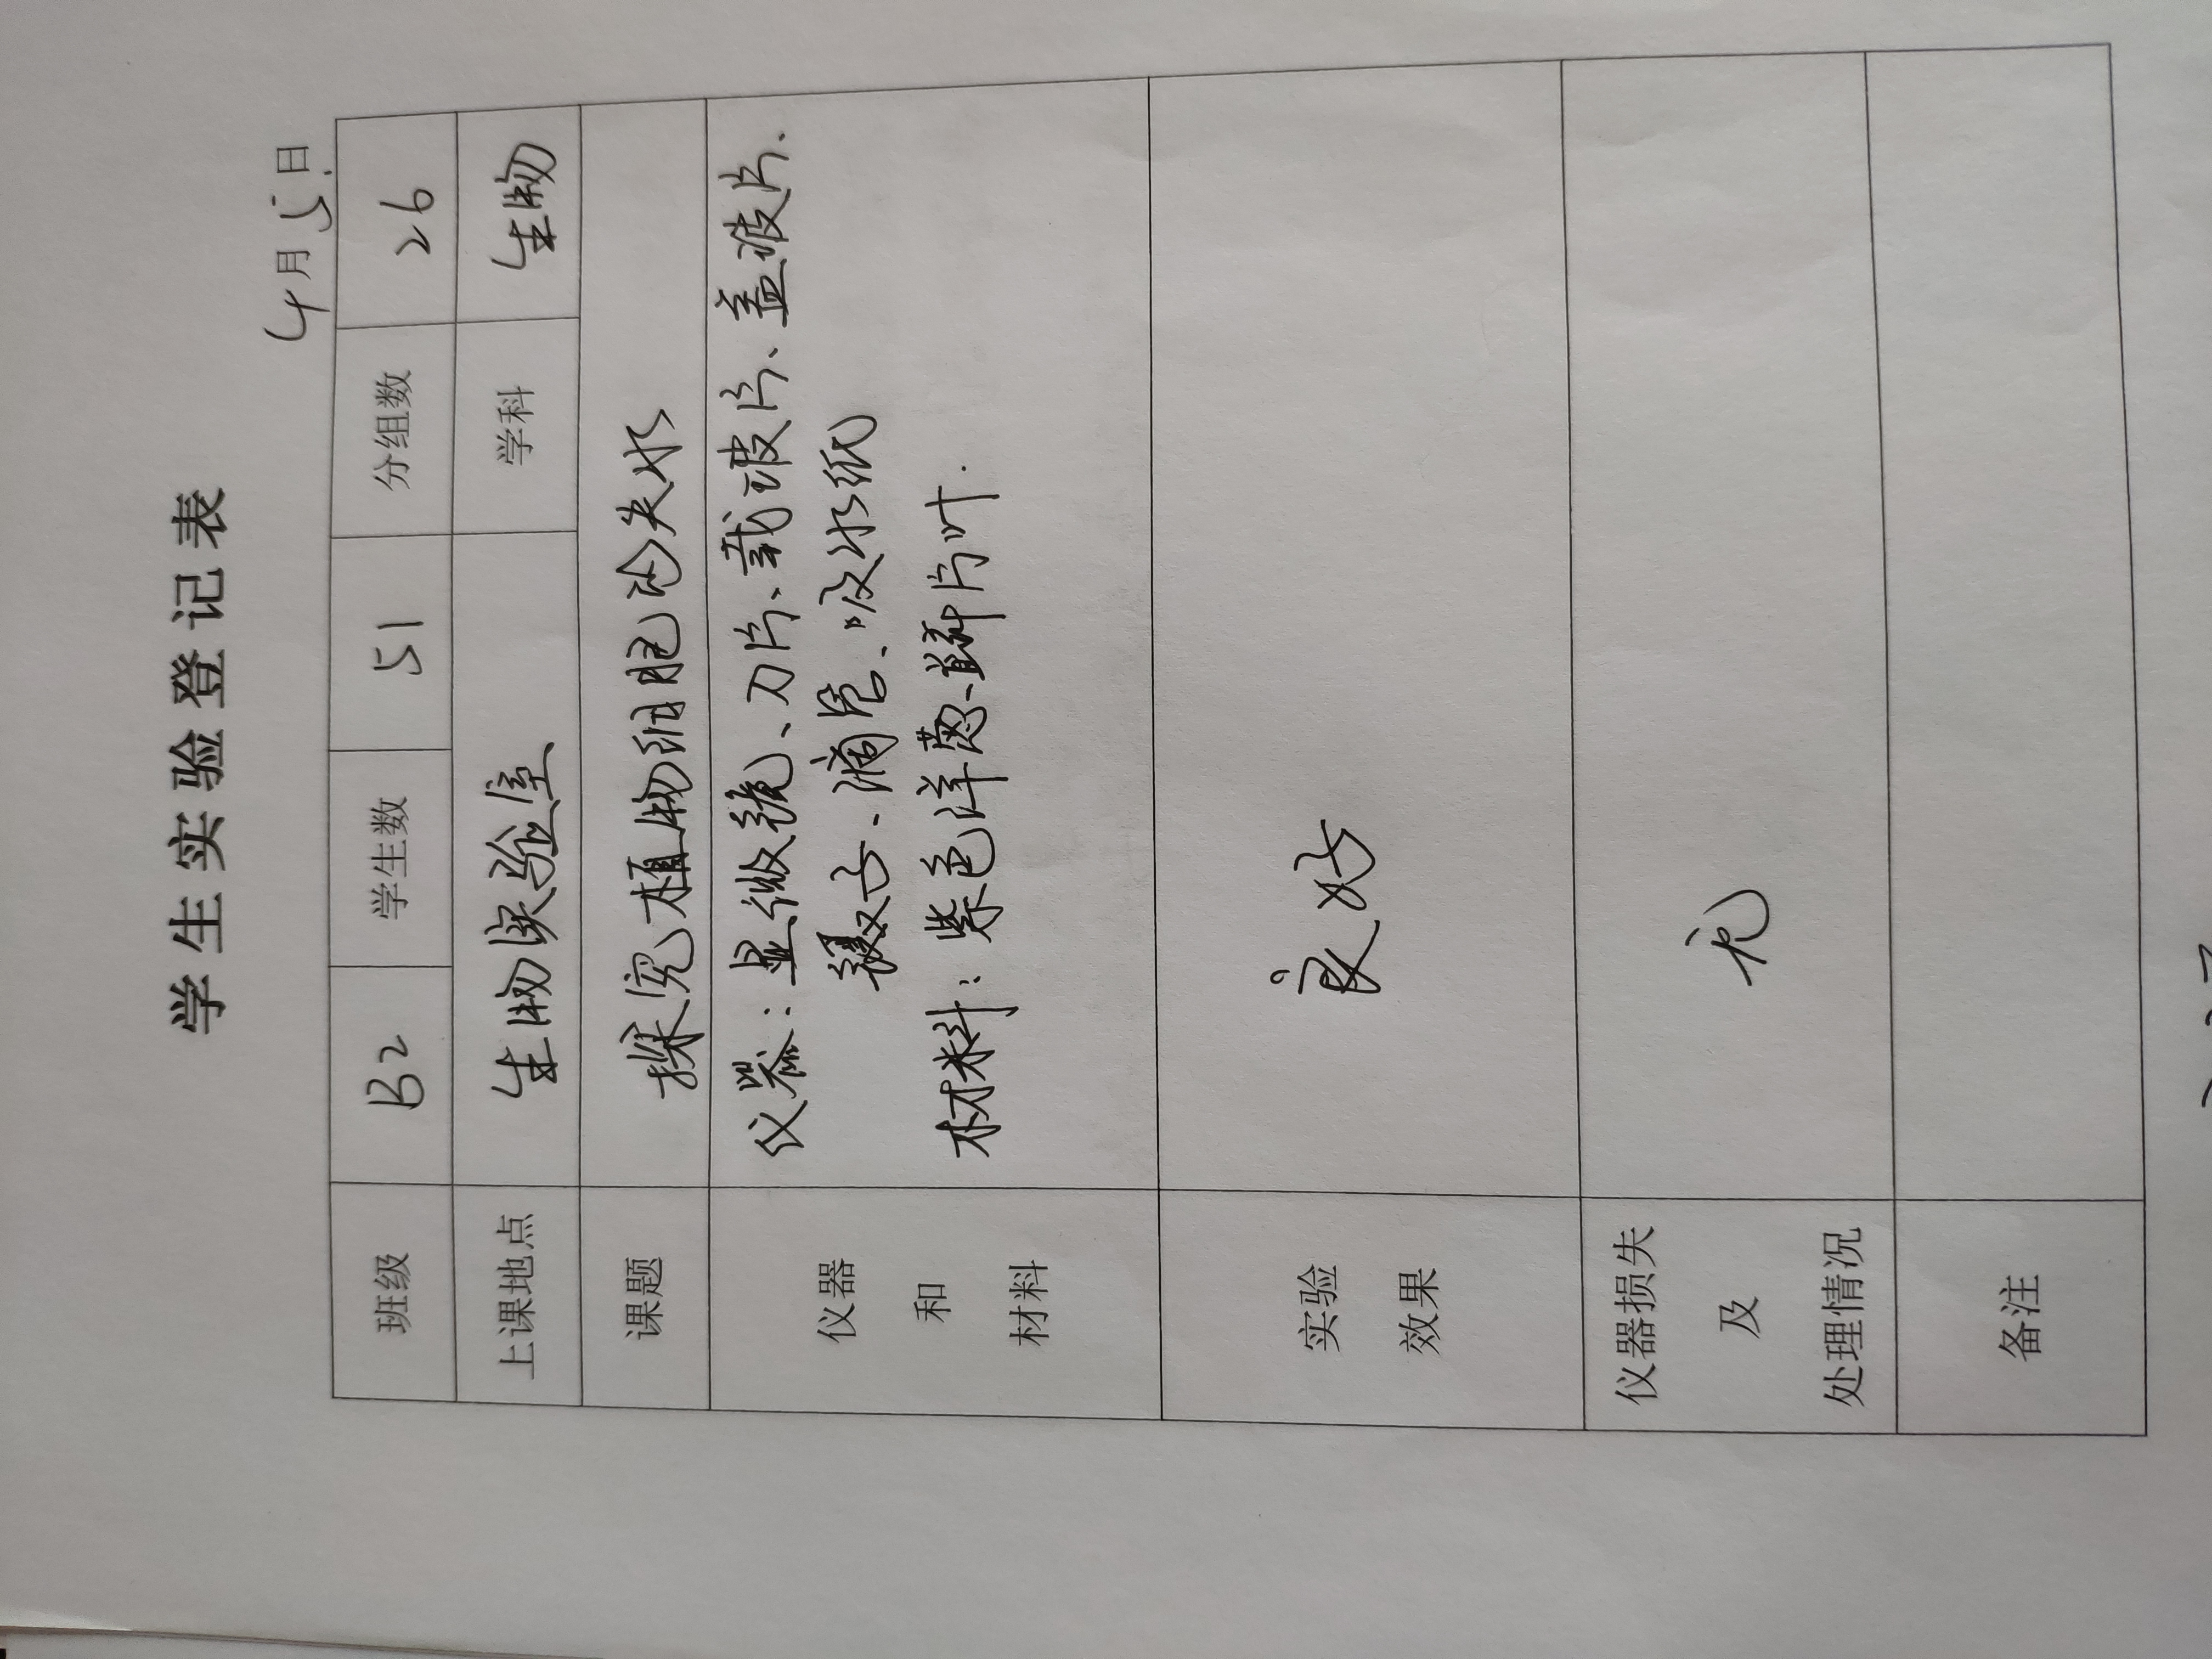 学生实验登记表
4月5日
班级 B2 学生数 51 分组数 26
上课地点 生物实验室 学科 生物
课题 探究植物细胞的失水
仪器
和
材料
仪器：显微镜、刀片、载玻片、盖玻片、
镊子、滴管、吸水纸
材料：紫色洋葱鳞片叶.
实验
效果
良好
仪器损失
及
处理情况
无
备注